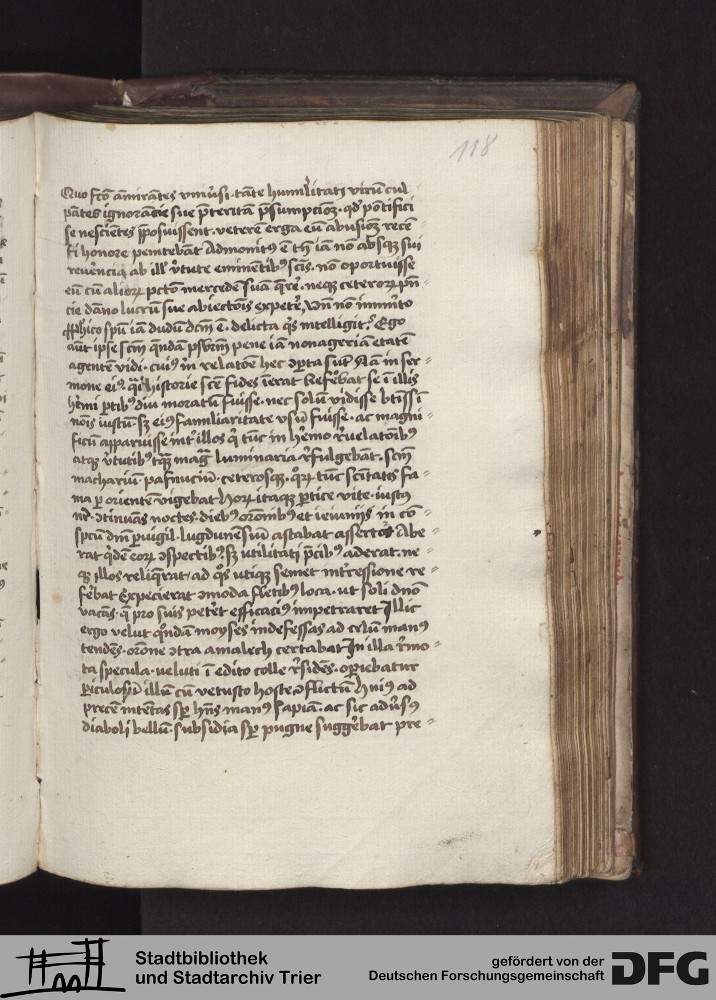 118
Quo fcō āmirātes vniu͛si · tāte humilitatꝭ virū cul
pātes ignorācie sue p̄teritā p̄sumpcioꝫ · qđ pōtifici
se nesciētes ꝓposuissent · veterē erga eū abusioꝫ recē
ti honore penitebāt Admonitꝰ ē
reuerēcia ab ill' v̓tute eminētibꝰ scīs · nō oportuisse
eū cū alioꝝ pctō mercedē suā q̄rē · neqꝫ ceteroꝝ
cie dāno lucrū sue abiectōis expetē͛ Vn̄ nō īmērito
ꝓph̓ico spū iā dudū dcm̄ ē · delicta q̓s intelligit · Ego
aūt ipse scm̄ q̄ndā pene iā nonageriā etatē
agentē vidi · cuiꝰ in relatōe hec ꝯꝑta sūt Nā in ser
mone eiꝰ historie scē fides ierat Refe͛bat se ī illis
he͛mi ꝑtibꝰ diu moratū fuisse · nec solū vidisse btissī
nōis iustū · sꝫ eiꝰ familiaritate vsū fuisse · ac magni
ficū apparuisse int͛ illos q̇ tūc in he͛mo r̓uelatōibꝰ
atqꝫ v̓tutibꝰ luminaria r̓fulgebāt · scm̄
machariū · pafnuciū · ceterosqꝫ · q̄ꝝ tūc scitatꝭ fa
ma ꝑ orientē vigebat hoꝝ itaqꝫ ꝑtice vite · iustꝰ
nr̄ · ꝯtinuās noctes · diebꝰ orōnibꝰ et ieiunijs in cō
spcū dn̄i ꝑuigil · lugdunēsiū astabat assertor Abe
rat q̓dē eoꝝ ꝯspectibꝰ · sꝫ vtilitati p̄cibꝰ aderat · ne
qꝫ illos reliq̄rat · ad q̓s vtiqꝫ semet int͛cessione re
fe͛bat Expecierat ꝯmoda fletibꝰ loca · vt soli dnō
vacās · q̄ pro suis pete͛t efficaciꝰ impetraret Illic
ergo velut q̓ndā moyses indefessas ad celū manꝰ
tendēs · orōne ꝯtra amalech certabat In illa r̓mo
ta specula · veluti ī edito colle r̓sidēs · oꝑiebatur
ꝑiculosū illū cū vetusto hoste ꝯflictū Huiꝰ ad
precē intētas sꝑ hn̄s manꝰ sapiam · ac sic adu͛sꝰ
diaboli bellū · subsidia sꝑ pugne sugge͛bat pre
Stadtbibliothek
und Stadtarchiv Trier
gefördert von der
Deutschen Forschungsgemeinschaft
DFG